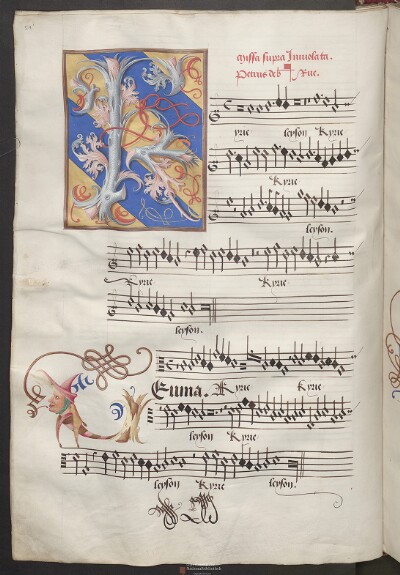 Missa supra Immolata.
Petrus de Rue.
yrie leyson Kyrie
Kyrie
leyson.
Kyrie Kyrie
leyson.
Kyrie Kyrie
leyson Kyrie
leyson Kyrie leyson.